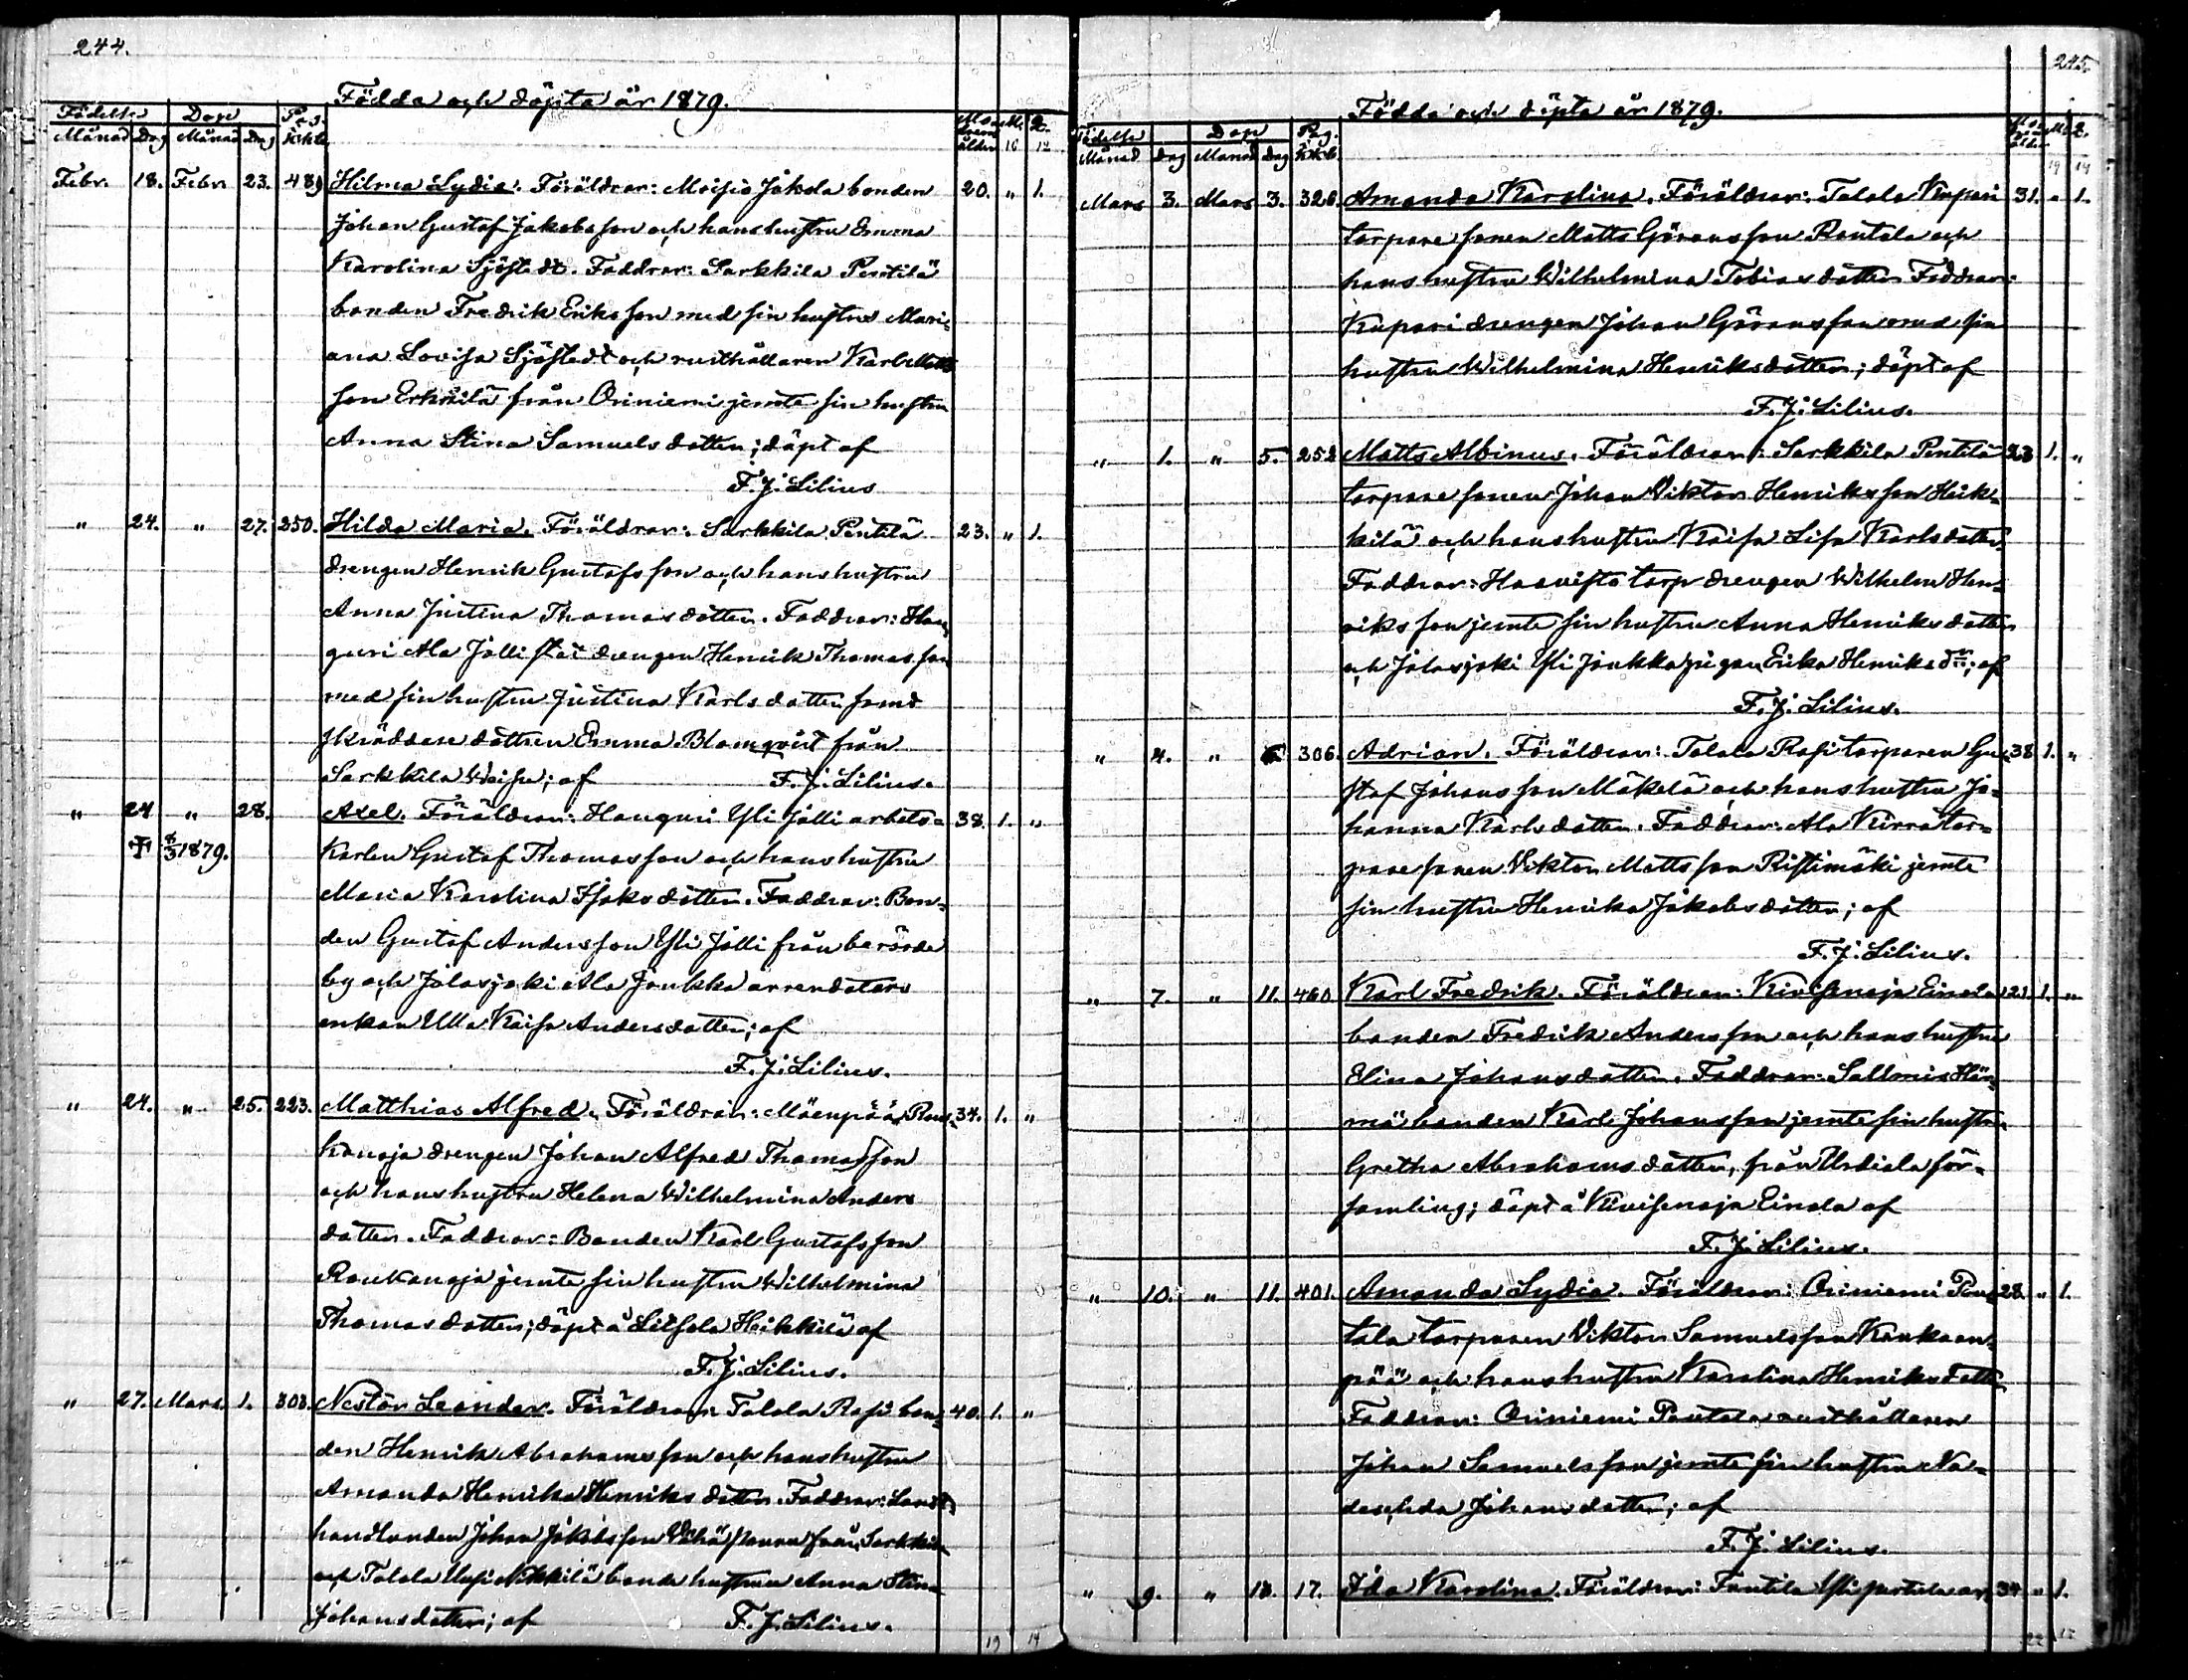 244.
Födda och döpta år 1879.
Födelse Dop Pag. Modrens M. Q.
Månad Dag Månad Dag kkb. ålder 16 12
Febr. 18. Febr. 23. 489 Hilma Lydia. Föräldrar: Moisio Jakola bonden 20. " 1.
Johan Gustaf Jakobsson och hans hustru Emma
Karolina Sjöstedt. Faddrar: Sarkkila Pentilä
bonden Fredrik Eriksson med sin hustru Mari-
ana Lovisa Sjöstedt och rusthållaren Karl Matts
son Erkkilä från Oriniemi jemte sin hustru
Anna Stina Samuelsdotter; döpt af
F. J. Lilius
" 24. " 27. 250. Hilda Maria. Föräldrar: Sarkkila Pentilä 23. " 1.
drengen Henrik Gustafsson och hans hustru
Anna Justina Thomasdotter. Faddrar: Hon
guri Ala Jalli drengen Henrik Thomasson
med sin hustru Justina Karlsdotter samt
skräddare dottren Emma Blomqvist från
Sarkkila; af F. J. Lilius.
" 24 " 28. Axel. Föräldrar: Honguri Yli Jalli arbets- 38. 1. "
† 8/3 1879. karlen Gustaf Thomasson och hans hustru
Maria Karolina Isaksdotter. Faddrar: Bon-
den Gustaf Andersson Yli Jalli från berörde
by och Jalasjoki Ala Jaukka arrendators
enkan Ulla Kaisa Andersdotter; af
F. J. Lilius.
" 24. " 25. 223. Matthias Alfred. Föräldrar: Mäenpää Rau- 34. 1. "
kanoja drengen Johan Alfred Thomasson
och hans hustru Helena Wilhelmina Anders
dotter. Faddrar: Bonden Karl Gustafsson
Raukanoja jemte sin hustru Wilhelmina
Thomasdotter; döpt å Heikkilä af
F. J. Lilius.
" 27. Mars 1. 303. Nestor Leander. Föräldrar: Talala Rasi bon- 40. 1. "
den Henrik Abrahamsson och hans hustru
Amanda Henrika Henriksdotter. Faddrar: Landt
handlanden Johan Jakobsson från Sarkkila
och Talala Uusi Nikkilä bonde hustrun Anna Stina
Johansdotter; af F. J. Lilius.
19 14
245.
Födda och döpta år 1879.
Födelse Dop Pag. Modrens M. Q.
Månad Dag Månad Dag kkb. ålder 19 14
Mars 3. Mars 3. 326. Amanda Karolina. Föräldrar: Talala Kupari 31. " 1.
torpare sonen Matts Göransson Rantala och
hans hustru Wilhelmina Tobiasdotter Faddrar:
Kupari drengen Johan Göransson med sin
hustru Wilhelmina Henriksdotter; döpt af
F. J. Lilius.
" 1. " 5. 252 Matts Albinus. Föräldrar: Sarkkila Pentilä 23 1. "
torpare sonen Johan Viktor Henriksson Heik-
kilä och hans hustru Kaisa Lisa Karlsdotter.
Faddrar: Haavisto torp drengen Wilhelm Hen-
riksson jemte sin hustru Anna Henriksdotter
och Jalasjoki Yli Jaukka pigan Erika Henriksdr; af
F. J. Lilius.
" 4. " 306. Adrian. Föräldrar: Talala Rasi torparen Gu- 38 1. "
staf Johansson Mäkelä och hans hustru Jo-
hanna Karlsdotter. Faddrar: Ala Kirra tor-
pare sonen Viktor Mattsson Ristimäki jemte
sin hustru Henrika Jakobsdotter; af
F. J. Lilius.
" 7. " 11. 460 Karl Fredrik. Föräldrar: Kivisenoja Einola 21. 1. "
bonden Fredrik Andersson och hans hustru
Elina Johansdotter. Faddrar: Sallmis Här-
mä bonden Karl Johansson jemte sin hustru
Gretha Abrahamsdotter, från Urdiala för-
samling; döpt å Kivisenoja Einola af
F. J. Lilius.
" 10. " 11. 401. Amanda Lydia. Föräldrar: Oriniemi Pen- 28. " 1.
tala torparen Viktor Samuelsson Kankaan-
pää och hans hustru Karolina Henriksdotter
Faddrar: Oriniemi Pentala rusthållaren
Johan Samuelsson jemte sin hustru Na-
deschda Johansdotter; af
F. J. Lilius.
" 9. " 13. 17. Ida Karolina. Föräldrar: Tantila Yli pertula ar- 34 " 1.